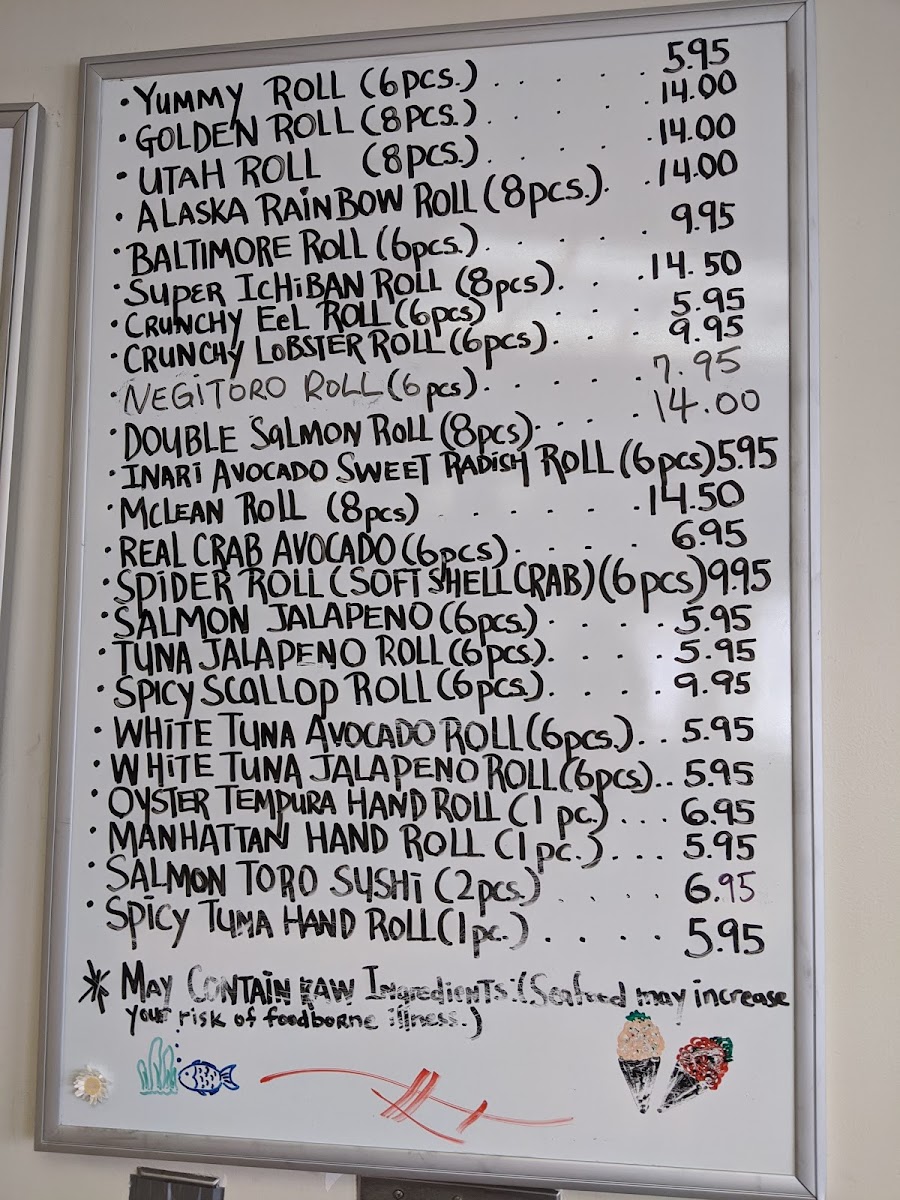 • YUMMY ROLL (6pcs.) . . . . . . 5.95
• GOLDEN ROLL (8PCS.) . . . . . . 14.00
• UTAH ROLL (8PCS.) . . . . . 14.00
• ALASKA RAINBOW ROLL (8pcs.). . 14.00
• BALTIMORE ROLL (6pcs.) . . . . . 9.95
• SUPER ICHIBAN ROLL (8pcs). . . . 14.50
• CRUNCHY EEL ROLL (6pcs) . . . . . 5.95
• CRUNCHY LOBSTER ROLL (6pcs) . . . . 9.95
• NEGITORO ROLL (6pcs) . . . . . 7.95
• DOUBLE SALMON ROLL (8pcs) . . . . 14.00
• INARI AVOCADO SWEET RADISH ROLL (6pcs) 5.95
• MCLEAN ROLL (8pcs) . . . . . . 14.50
• REAL CRAB AVOCADO (6pcs) . . . . 6.95
• SPIDER ROLL (SOFT SHELL CRAB) (6pcs) 9.95
• SALMON JALAPENO (6pcs.) . . . . 5.95
• TUNA JALAPENO ROLL (6pcs.). . . . 5.95
• SPICY SCALLOP ROLL (6pcs.) . . . . 9.95
• WHITE TUNA AVOCADO ROLL (6pcs.). . . 5.95
• WHITE TUNA JALAPENO ROLL (6pcs). . . 5.95
• OYSTER TEMPURA HAND ROLL (1 pc.) . . . 6.95
• MANHATTAN HAND ROLL (1pc.) . . . 5.95
• SALMON TORO SUSHI (2pcs.) . . . . 6.95
• SPICY TUMA HAND ROLL (1pc.) . . . . 5.95
* MAY CONTAIN RAW INgredients: (Seafood may increase
your risk of foodborne illness.)